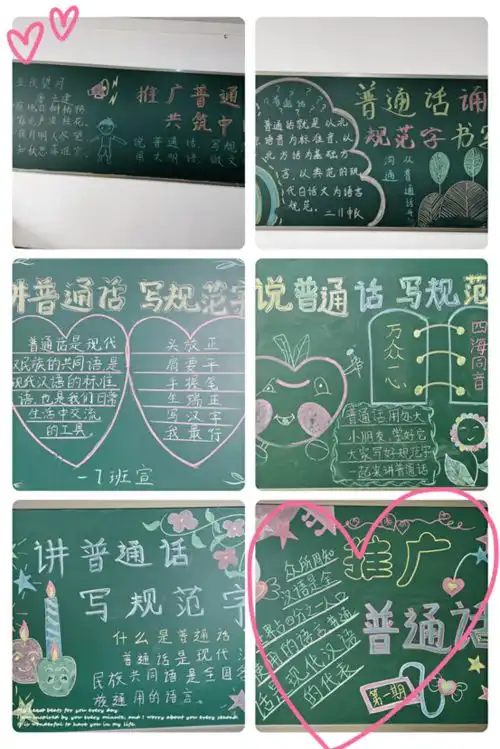 推广普通
共筑中
说普通话 写规
普通话诵
规范字书写
普通话就是以北
京语音为标准音,以
北方话为基础方
言,以典范的现
代白话文为语言
规范。
沟通
从普通话开
讲普通话 写规范字
普通话是现代
汉民族的共同语是
现代汉语的标准
语,也是我们日常
生活中交流
的工具。
头放正
肩要平
手握笔
坐端正
写汉字
我最行
一7班宣
说普通话 写规范
万众一心
四海同音
普通话用处大
小朋友学好它
大家写好规范字
一起来讲普通话
讲普通话
写规范字
什么是普通话
普通话是现代汉
民族共同语是全国各
族通用的语言。
The heart beats for you every day.
I am inspired by you every minute, and I worry about you every second.
It is wonderful to have you in my life.
推广
普通话
众所周知
汉语是全
界四分之一人口
使用的语言普通
话是现代汉语
的代表
第一期